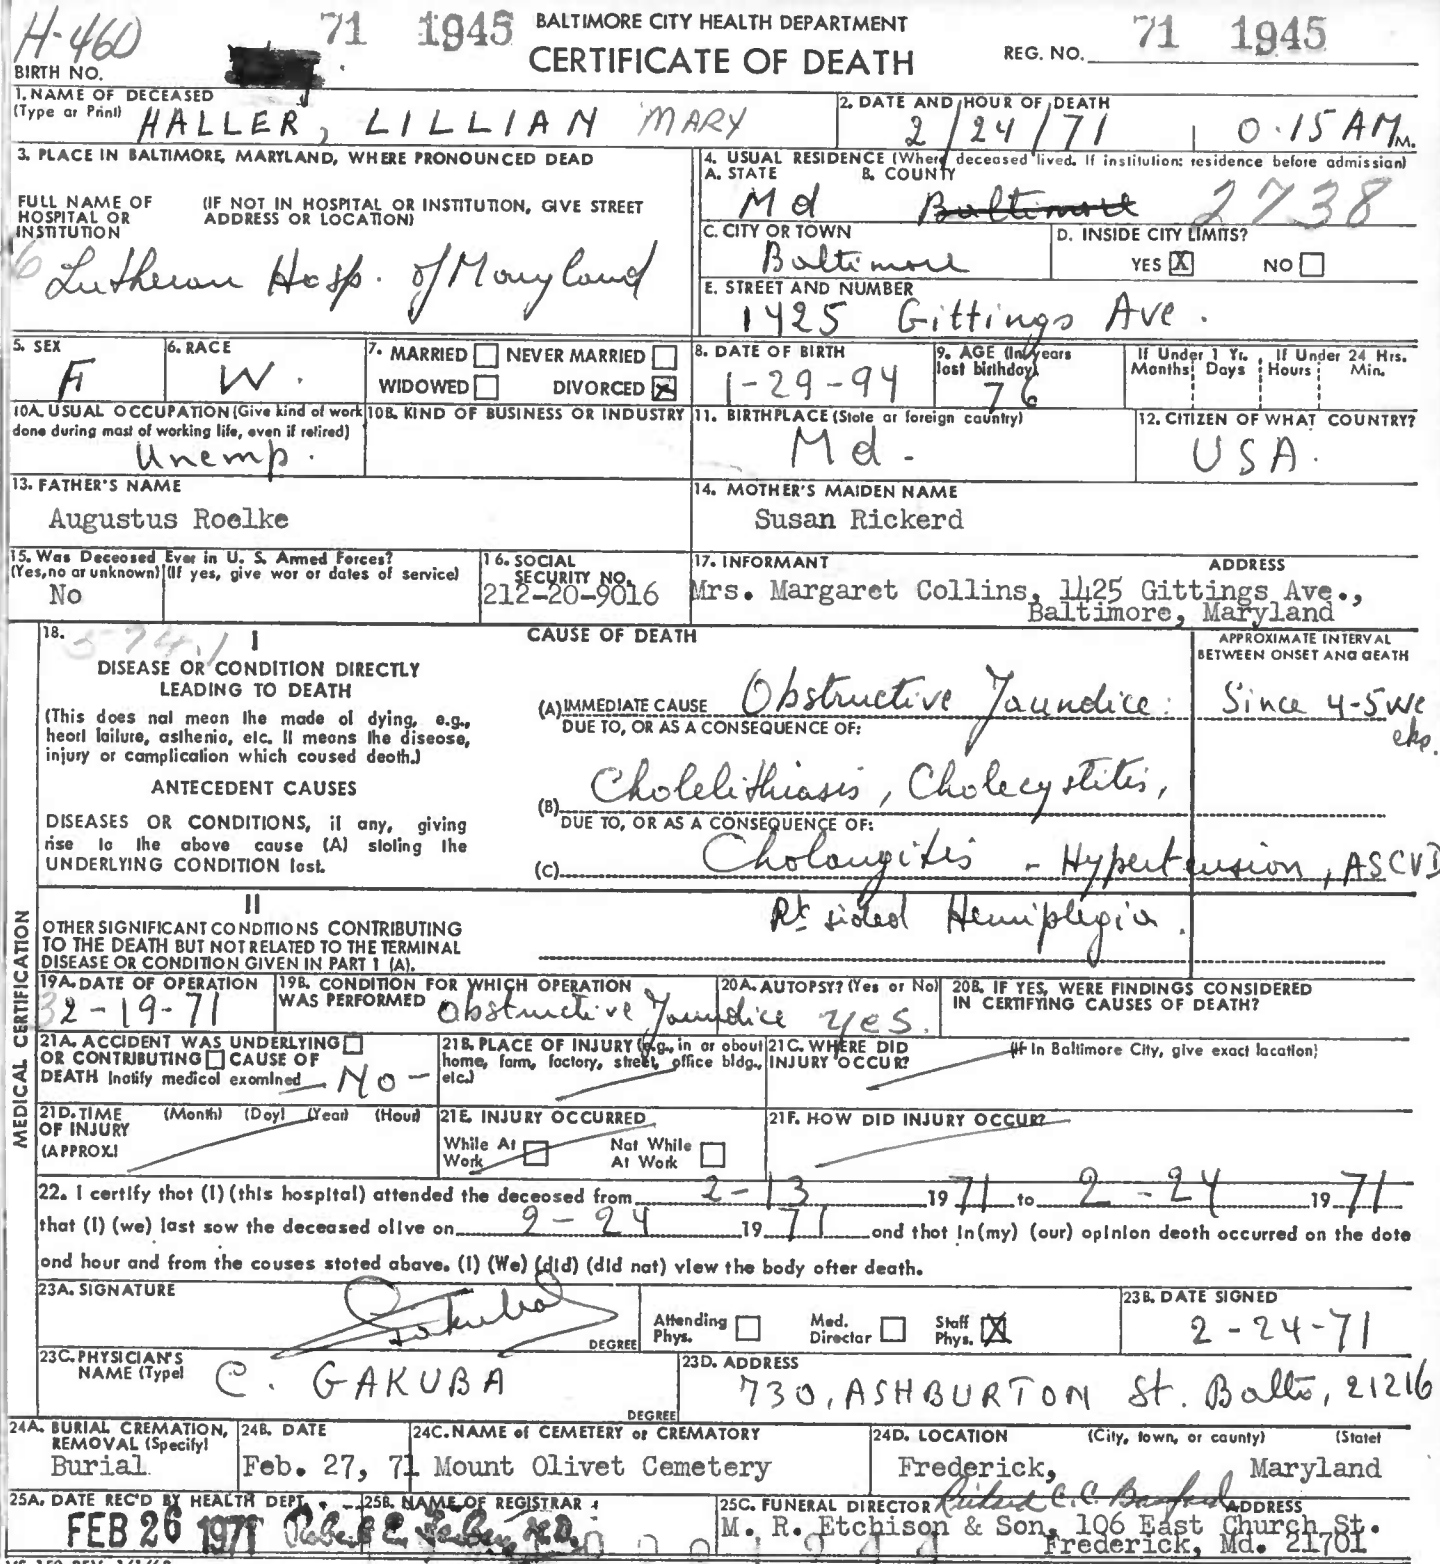 H-460 71 1945 BALTIMORE CITY HEALTH DEPARTMENT 71 1945
BIRTH NO. CERTIFICATE OF DEATH REG. NO.
1. NAME OF DECEASED (Type or Print) HALLER, LILLIAN MARY
2. DATE AND HOUR OF DEATH 2/24/71 0.15 AM M.
3. PLACE IN BALTIMORE, MARYLAND, WHERE PRONOUNCED DEAD
FULL NAME OF HOSPITAL OR INSTITUTION (IF NOT IN HOSPITAL OR INSTITUTION, GIVE STREET ADDRESS OR LOCATION)
Lutheran Hosp. of Maryland
4. USUAL RESIDENCE (Where deceased lived. If institution: residence before admission)
A. STATE Md B. COUNTY Baltimore 2738
C. CITY OR TOWN Baltimore D. INSIDE CITY LIMITS? YES X NO
E. STREET AND NUMBER 1425 Gittings Ave.
5. SEX F 6. RACE W. 7. MARRIED NEVER MARRIED WIDOWED DIVORCED X
8. DATE OF BIRTH 1-29-94 9. AGE (In years last birthday) 76 If Under 1 Yr. Months Days If Under 24 Hrs. Hours Min.
10A. USUAL OCCUPATION (Give kind of work done during most of working life, even if retired) Unemp. 10B. KIND OF BUSINESS OR INDUSTRY
11. BIRTHPLACE (State or foreign country) Md. 12. CITIZEN OF WHAT COUNTRY? USA.
13. FATHER'S NAME Augustus Roelke
14. MOTHER'S MAIDEN NAME Susan Rickerd
15. Was Deceased Ever in U. S. Armed Forces? (Yes, no or unknown) (If yes, give war or dates of service) No
16. SOCIAL SECURITY NO. 212-20-9016
17. INFORMANT ADDRESS
Mrs. Margaret Collins, 1425 Gittings Ave.,
Baltimore, Maryland
18. 574.1 I CAUSE OF DEATH APPROXIMATE INTERVAL BETWEEN ONSET AND DEATH
DISEASE OR CONDITION DIRECTLY LEADING TO DEATH
(This does not mean the mode of dying, e.g., heart failure, asthenia, etc. It means the disease, injury or complication which caused death.)
(A) IMMEDIATE CAUSE Obstructive Jaundice: Since 4-5 weeks.
DUE TO, OR AS A CONSEQUENCE OF:
ANTECEDENT CAUSES
DISEASES OR CONDITIONS, if any, giving rise to the above cause (A) stating the UNDERLYING CONDITION last.
(B) Cholelithiasis, Cholecystitis,
DUE TO, OR AS A CONSEQUENCE OF:
(C) Cholangitis - Hypertension, ASCVD
II
OTHER SIGNIFICANT CONDITIONS CONTRIBUTING TO THE DEATH BUT NOT RELATED TO THE TERMINAL DISEASE OR CONDITION GIVEN IN PART 1 (A).
Rt sided Hemiplegia.
MEDICAL CERTIFICATION
19A. DATE OF OPERATION 2-19-71 19B. CONDITION FOR WHICH OPERATION WAS PERFORMED Obstructive Jaundice
20A. AUTOPSY? (Yes or No) Yes. 20B. IF YES, WERE FINDINGS CONSIDERED IN CERTIFYING CAUSES OF DEATH?
21A. ACCIDENT WAS UNDERLYING OR CONTRIBUTING CAUSE OF DEATH (notify medical examiner) No -
21B. PLACE OF INJURY (e.g., in or about home, farm, factory, street, office bldg., etc.)
21C. WHERE DID INJURY OCCUR? (If in Baltimore City, give exact location)
21D. TIME OF INJURY (APPROX.) (Month) (Day) (Year) (Hour)
21E. INJURY OCCURRED While At Work Not While At Work
21F. HOW DID INJURY OCCUR?
22. I certify that (I) (this hospital) attended the deceased from 2-13 1971 to 2-24 1971
that (I) (we) last saw the deceased alive on 2-24 1971 and that in (my) (our) opinion death occurred on the date
and hour and from the causes stated above. (I) (We) (did) (did not) view the body after death.
23A. SIGNATURE Gakuba DEGREE Attending Phys. Med. Director Staff Phys. X
23B. DATE SIGNED 2-24-71
23C. PHYSICIAN'S NAME (Type) C. GAKUBA DEGREE
23D. ADDRESS 730, ASHBURTON St. Balto, 21216
24A. BURIAL CREMATION, REMOVAL (Specify) Burial 24B. DATE Feb. 27, 71
24C. NAME of CEMETERY or CREMATORY Mount Olivet Cemetery
24D. LOCATION (City, town, or county) (State) Frederick, Maryland
25A. DATE REC'D BY HEALTH DEPT. FEB 26 1971
25B. NAME OF REGISTRAR Robert E. Farber, M.D.
25C. FUNERAL DIRECTOR ADDRESS
M. R. Etchison & Son, 106 East Church St.
Frederick, Md. 21701